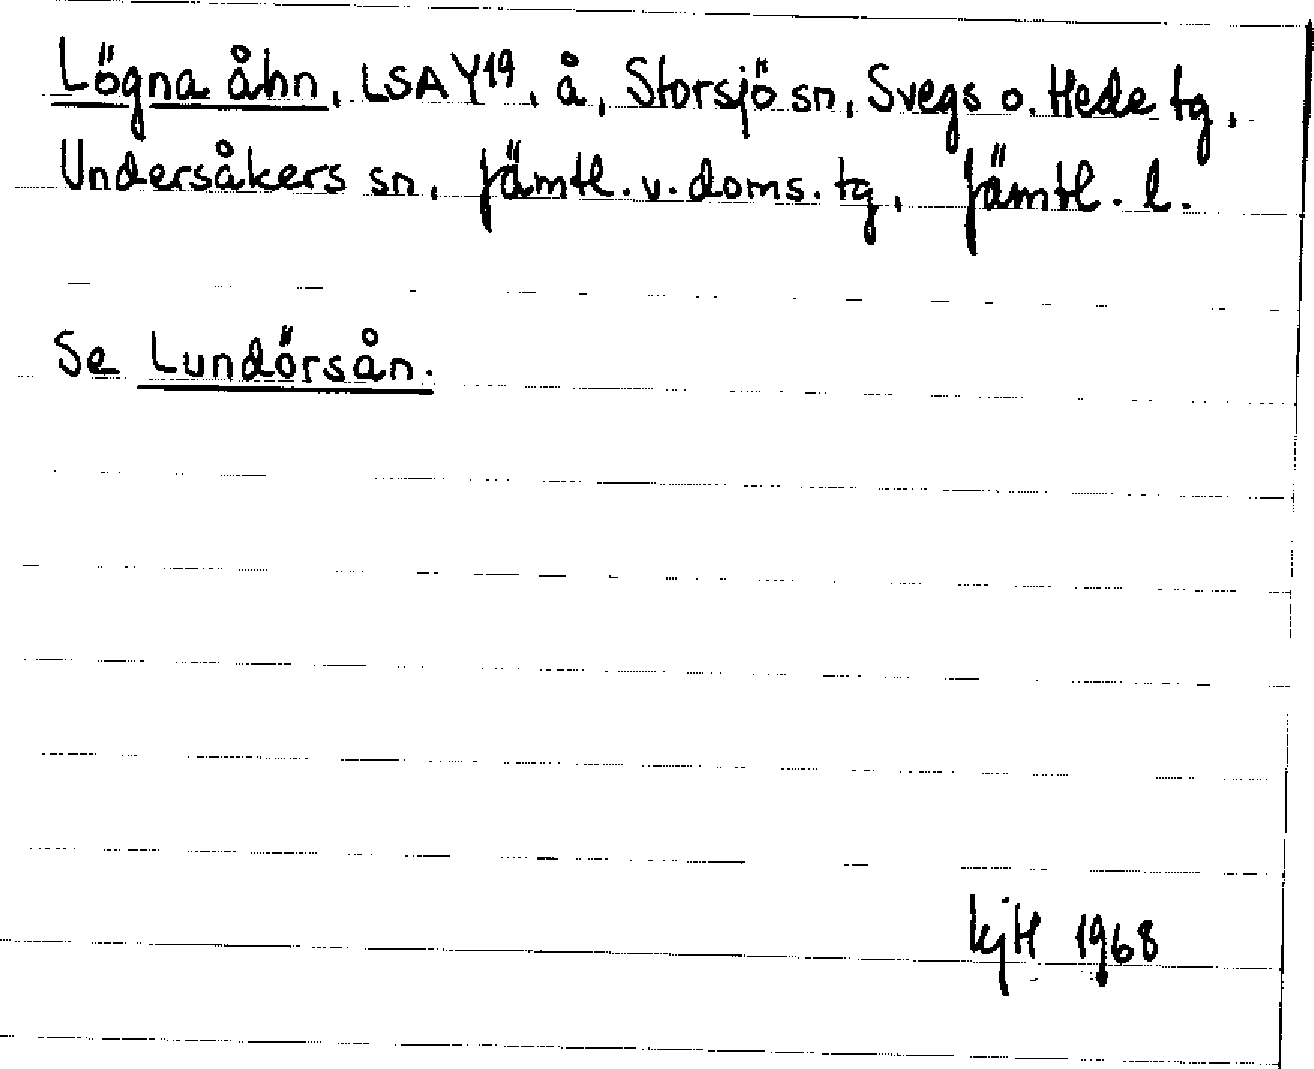 Lögna åhn, LSA Y19, å, Storsjö sn, Svegs o. Hede tg,
Undersåkers sn, Jämtl. v. doms. tg, Jämtl. l.
Se Lundörsån.
kjH 1968